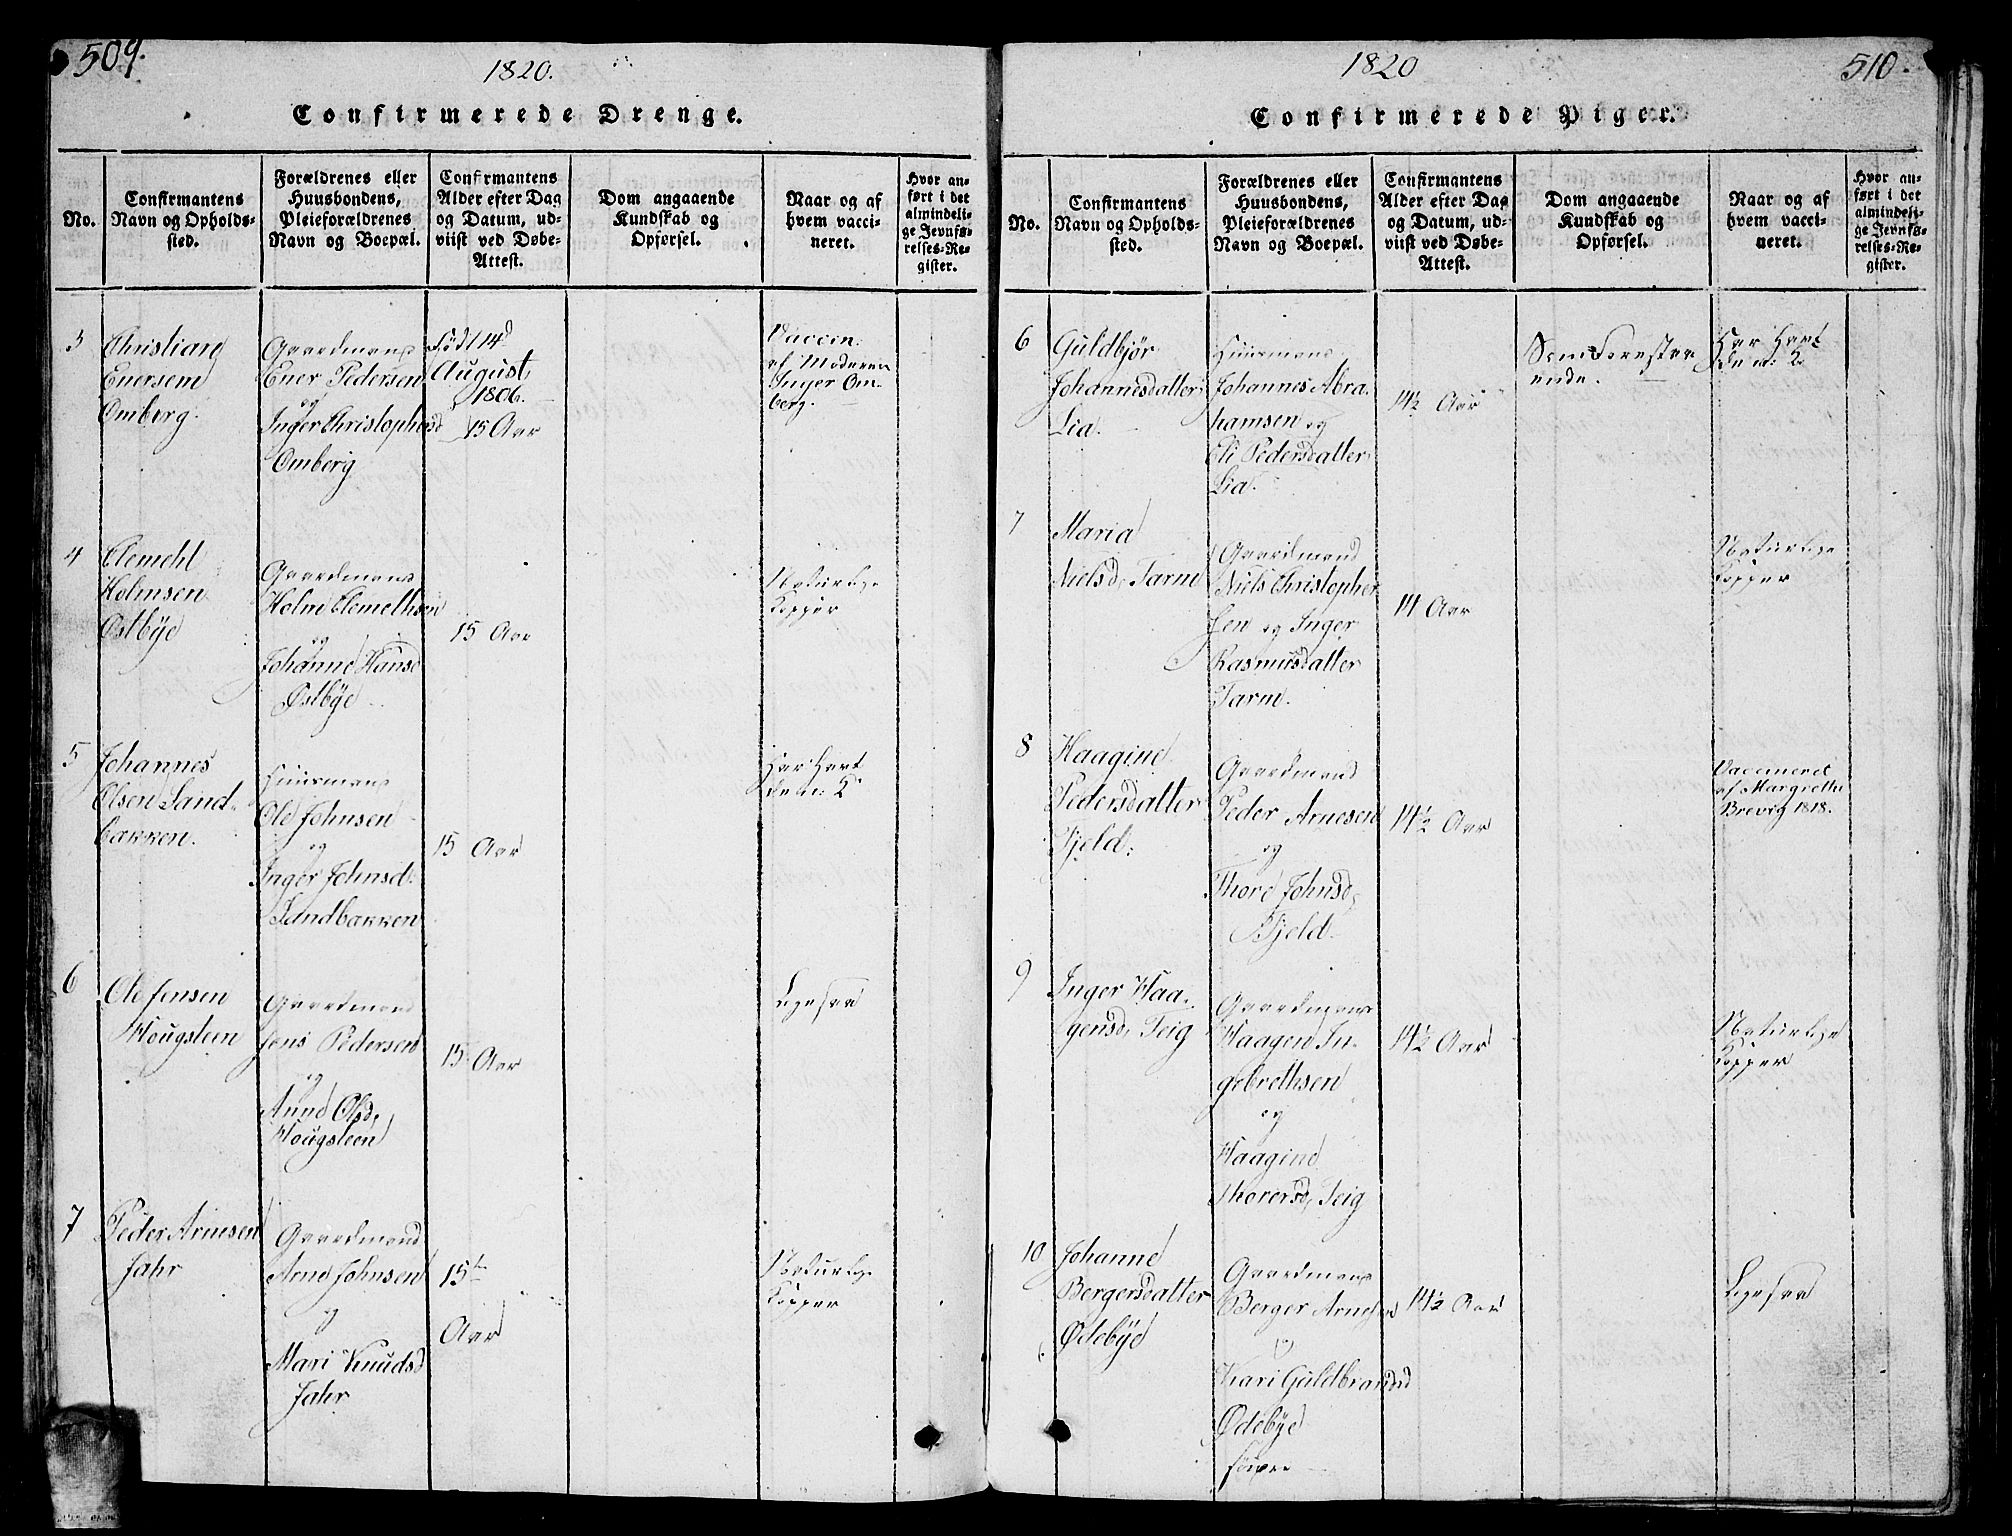 509.
1820.
Confirmerede Drenge.
No.
Confirmantens
Navn og Opholds-
sted.
Forældrenes eller
Huusbondens,
Pleieforældrenes
Navn og Boepæl.
Confirmantens
Alder efter Dag
og Datum, ud-
viist ved Døbe-
Attest.
Dom angaaende
Kundskab og
Opførsel.
Naar og af
hvem vacci-
neret.
Hvor an-
ført i det
almindeli-
ge Jevnfø-
relses-Re-
gister.
3
Christian
Enersem
Omberg.
Gaardmand
Ener Pedersen
og
Inger Christophersd
Omberg
Fød 14d
August
1806.
15 Aar
Vaccin:
af Moderen
Inger Om-
berg.
4
Clemeht
Holmsen
Østbÿe
Gaardmand
Holm Clemethsen
og
Johanne Hansd
Østbÿe
15 Aar
Naturlige
Kopper
5
Johannes
Olsen Sand-
bakken.
Huusmand
Ole Johnsen
og
Inger Johnsd.
Sandbakken
15 Aar
Har Havt
dem:
6
Ole Jensen
Hougsteen
Gaardmand
Jens Pedersen
og
Anne Olsd,
Hougsteen
15 Aar
Ligesaa
7
Peder Arnesen
Jahr
Gaardmand
Arne Johnsen
og
Mari Knudsd
Jahr
15
Aar
Naturlige
Kopper
1820
510.
Confirmerede Piger.
No.
Confirmantens
Navn og Opholds-
sted.
Forældrenes eller
Huusbondens,
Pleieforældrenes
Navn og Boepæl.
Confirmantens
Alder efter Dag
og Datum, ud-
viist ved Døbe-
Attest.
Dom angaaende
Kundskab og
Opførsel.
Naar og af
hvem vacci-
neret.
Hvor an-
ført i det
almindeli-
ge Jevnfø-
relses-Re-
gister.
6
Guldbjør
Johannesdatter
Lia.
Huusmand
Johannes Abra-
hamsen og
Eli Pedersdatter
Lia.
14½ Aar
Som Forestaa-
ende.
Har Havt
dem:
7
Maria
Nielsd, Tarm
Gaardmand
Niels Christopher
sen og Inger
Rasmusdatter
Tarm.
14 Aar
Naturlige
Kopper
8
Haagine
Pedersdatter
Fjeld.
Gaardmand
Peder Arnesen
og
Thore Johnsd,
Fjeld.
14½ Aar
Vaccineret
af Margrethe
Brevig 1818.
9
Inger Haa-
gensd, Teig
Gaardmand
Haagen In-
gebrethsen
og
Haagine
Thorersd, Teig
14½ Aar
Naturlige
Kopper
10
Johanne
Bergersdatter
Ødebÿe
Gaardmand
Berger Arnesen
og
Kari Guldbrandsd
Ødebÿe
14½ Aar
Ligesaa